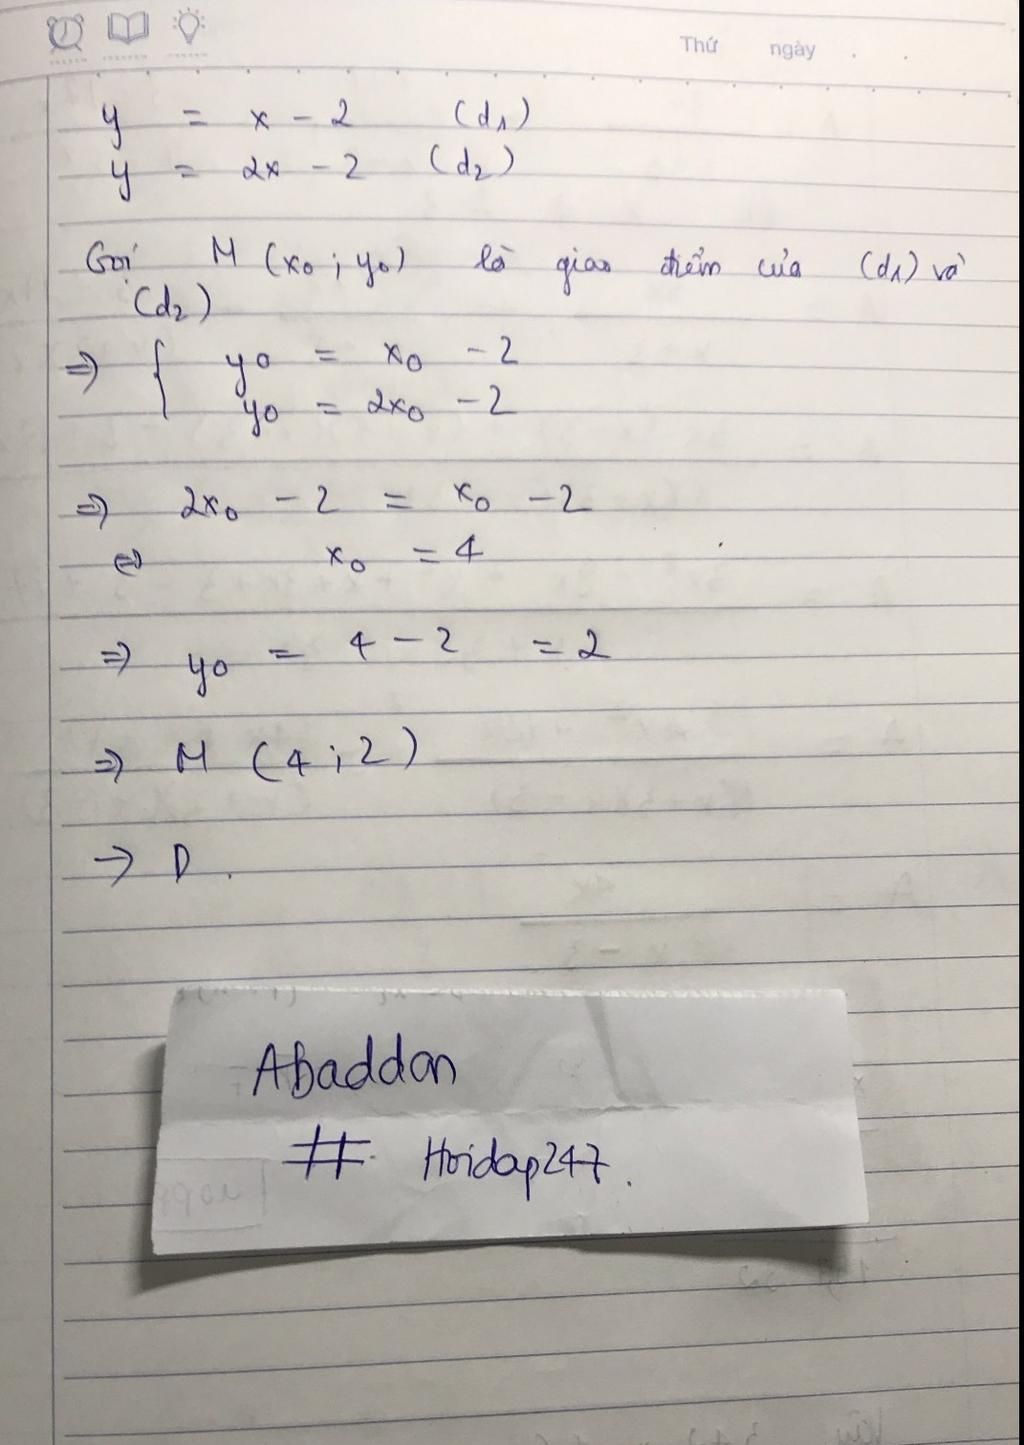 Thứ ngày .
y = x - 2 (d1)
y = 2x - 2 (d2)
Gọi M (x0 ; y0) là giao điểm của (d1) và
(d2)
=> { y0 = x0 - 2
y0 = 2x0 - 2
=> 2x0 - 2 = x0 - 2
<=> x0 = 4
=> y0 = 4 - 2 = 2
=> M (4 ; 2)
-> D .
Abaddon
# Hoidap247.